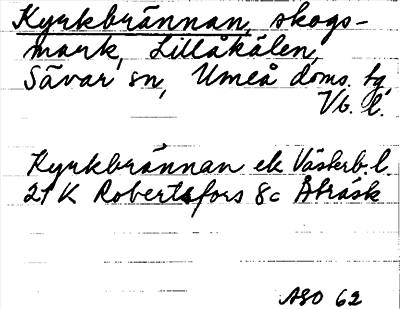 Kyrkbrännan, skogs-
mark, Lillåkälen,
Sävar sn, Umeå doms. tg,
Vb. l.
Kyrkbrännan ek Västerb. l.
21 K Robertsfors 8c Åbräsk
ASO 62